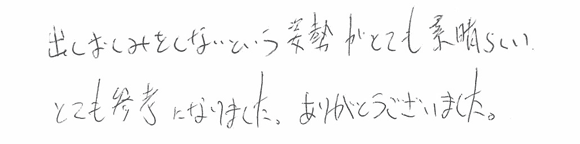 出しおしみをしないという姿勢がとても素晴らしい
とても参考になりました。ありがとうございました。